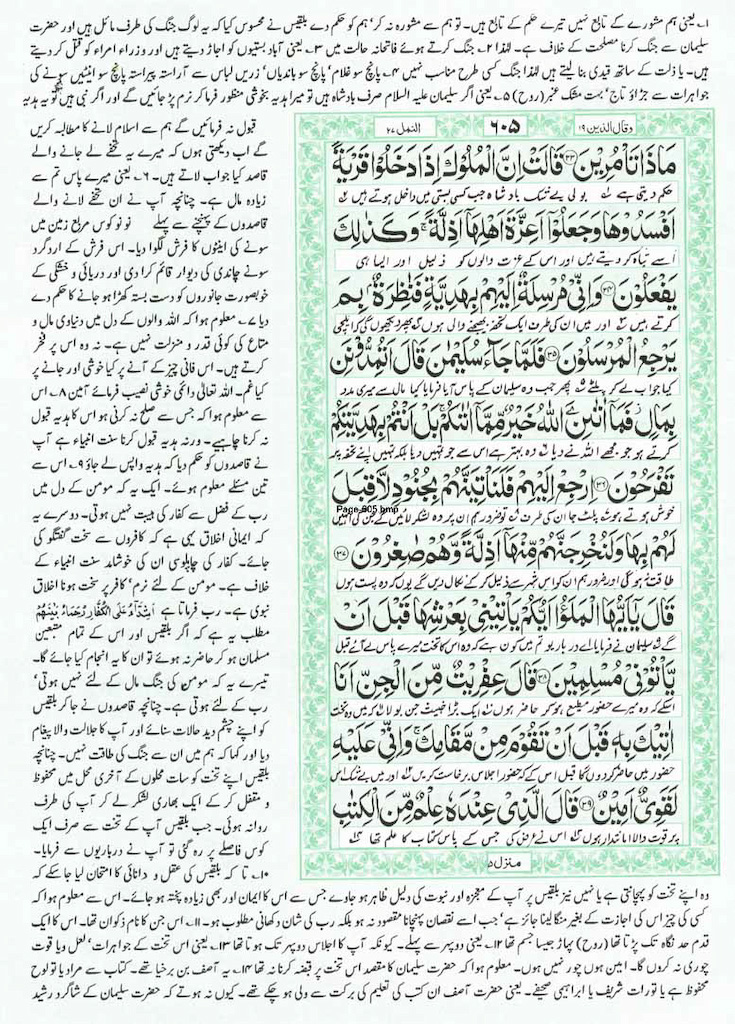 ۱۔ یعنی ہم مشورے کے تابع نہیں تیرے حکم کے تابع ہیں۔ تو ہم سے مشورہ نہ کر' ہم کو حکم دے بلقیس نے محسوس کیا کہ یہ لوگ جنگ کی طرف مائل ہیں اور حضرت
سلیمان سے جنگ کرنا مصلحت کے خلاف ہے۔ لہٰذا ۲۔ جنگ کرتے ہوئے فاتحانہ حالت میں ۳۔ یعنی آباد بستیوں کو اجاڑ دیتے ہیں اور وزراء امراء کو قتل کر دیتے
ہیں۔ یا ذلت کے ساتھ قیدی بنا لیتے ہیں لہٰذا جنگ کسی طرح مناسب نہیں ۴۔ پانچ سو غلام' پانچ سو باندیاں' زریں لباس سے آراستہ پیراستہ پانچ سو اینٹیں سونے کی
جواہرات سے جڑاؤ تاج' بہت مشک عنبر (روح) ۵۔ یعنی اگر سلیمان علیہ السلام صرف بادشاہ ہیں تو میرا ہدیہ بخوشی منظور فرما کر نرم پڑ جائیں گے اور اگر نبی ہیں تو یہ ہدیہ
وقال الذین ۱۹
۶۰۵
النمل ۲۷
مَاذَا تَاْمُرِیْنَ ۳۳ قَالَتْ اِنَّ الْمُلُوْكَ اِذَا دَخَلُوْا قَرْیَةً
حکم دیتی ہے بولی بے شک بادشاہ جب کسی بستی میں داخل ہوتے ہیں
اَفْسَدُوْهَا وَجَعَلُوْۤا اَعِزَّةَ اَهْلِهَاۤ اَذِلَّةً ۚ وَكَذٰلِكَ
اُسے تباہ کر دیتے ہیں اور اس کے عزت والوں کو ذلیل اور ایسا ہی
یَفْعَلُوْنَ ۳۴ وَاِنِّیْ مُرْسِلَةٌ اِلَیْهِمْ بِهَدِیَّةٍ فَنٰظِرَةٌۢ بِمَ
کرتے ہیں اور میں ان کی طرف ایک تحفہ بھیجنے والی ہوں پھر دیکھوں گی کہ ایلچی
یَرْجِعُ الْمُرْسَلُوْنَ ۳۵ فَلَمَّا جَآءَ سُلَیْمٰنَ قَالَ اَتُمِدُّوْنَنِ
کیا جواب لے کر پلٹے پھر جب وہ سلیمان کے پاس آیا فرمایا کیا مال سے میری مدد
بِمَالٍ ؗ فَمَاۤ اٰتٰىنِ ےَ اللّٰهُ خَیْرٌ مِّمَّاۤ اٰتٰىكُمْ ۚ بَلْ اَنْتُمْ بِهَدِیَّتِكُمْ
کرتے ہو جو مجھے اللہ نے دیا وہ بہتر ہے اس سے جو تمہیں دیا بلکہ تمہیں اپنے تحفہ پر
تَفْرَحُوْنَ ۳۶ اِرْجِعْ اِلَیْهِمْ فَلَنَاْتِیَنَّهُمْ بِجُنُوْدٍ لَّا قِبَلَ
Page 605.bmp
خوش ہوتے ہو پلٹ جا ان کی طرف تو ضرور ہم ان پر وہ لشکر لائیں گے جن کی انہیں
لَهُمْ بِهَا وَلَنُخْرِجَنَّهُمْ مِّنْهَاۤ اَذِلَّةً وَّهُمْ صٰغِرُوْنَ ۳۷
طاقت نہ ہوگی اور ضرور ہم ان کو اس شہر سے ذلیل کر کے نکال دیں گے یوں کہ وہ پست ہوں
قَالَ یٰۤاَیُّهَا الْمَلَؤُا اَیُّكُمْ یَاْتِیْنِیْ بِعَرْشِهَا قَبْلَ اَنْ
گے سلیمان نے فرمایا اے درباریو تم میں کون ہے کہ وہ اس کا تخت میرے پاس لے آئے قبل
یَّاْتُوْنِیْ مُسْلِمِیْنَ ۳۸ قَالَ عِفْرِیْتٌ مِّنَ الْجِنِّ اَنَا
اسکے کہ وہ میرے حضور مطیع ہو کر حاضر ہوں ایک بڑا خبیث جن بولا کہ میں وہ تخت
اٰتِیْكَ بِهٖ قَبْلَ اَنْ تَقُوْمَ مِنْ مَّقَامِكَ ۚ وَاِنِّیْ عَلَیْهِ
حضور میں حاضر کردوں گا قبل اس کے کہ حضور اجلاس برخاست کریں اور میں بے شک اس
لَقَوِیٌّ اَمِیْنٌ ۳۹ قَالَ الَّذِیْ عِنْدَهٗ عِلْمٌ مِّنَ الْكِتٰبِ
پر قوت والا امانتدار ہوں اس نے عرض کی جس کے پاس کتاب کا علم تھا
منزل ۵
قبول نہ فرمائیں گے ہم سے اسلام لانے کا مطالبہ کریں
گے اب دیکھتی ہوں کہ میرے یہ تحفے لے جانے والے
قاصد کیا جواب لاتے ہیں۔ ۶۔ یعنی میرے پاس تم سے
زیادہ مال ہے۔ چنانچہ آپ نے ان تحفے لانے والے
قاصدوں کے پہنچنے سے پہلے نو نو کوس مربع زمین میں
سونے کی اینٹوں کا فرش لگوا دیا۔ اس فرش کے اردگرد
سونے چاندی کی دیوار قائم کرا دی اور دریائی و خشکی کے
خوبصورت جانوروں کو دست بستہ کھڑا ہو جانے کا حکم دے
دیا ۷۔ معلوم ہوا کہ اللہ والوں کے دل میں دنیاوی مال و
متاع کی کوئی قدر و منزلت نہیں ہے۔ نہ وہ اس پر فخر
کرتے ہیں۔ اس فانی چیز کے آنے پر کیا خوشی اور جانے پر
کیا غم۔ اللہ تعالٰی دائمی خوشی نصیب فرمائے آمین ۸۔ اس
سے معلوم ہوا کہ جس سے صلح نہ کرنی ہو اس کا ہدیہ قبول
نہ کرنا چاہیے۔ ورنہ ہدیہ قبول کرنا سنت انبیاء ہے آپ
نے قاصدوں کو حکم دیا کہ ہدیہ واپس لے جاؤ ۹۔ اس سے
تین مسئلے معلوم ہوئے۔ ایک یہ کہ مومن کے دل میں
رب کے فضل سے کفار کی ہیبت نہیں ہوتی۔ دوسرے یہ
کہ ایمانی اخلاق یہی ہے کہ کافروں سے سخت گفتگو کی
جائے۔ کفار کی چاپلوسی ان کی خوشامد سنت انبیاء کے
خلاف ہے۔ مومن کے لئے نرم' کافر پر سخت ہونا اخلاق
نبوی ہے۔ رب فرماتا ہے اَشِدَّآءُ عَلَی الْكُفَّارِ رُحَمَآءُ بَیْنَهُمْ
مطلب یہ ہے کہ اگر بلقیس اور اس کے تمام متبعین
مسلمان ہو کر حاضر نہ ہوئے تو ان کا یہ انجام کیا جائے گا۔
تیسرے یہ کہ مومن کی جنگ مال کے لئے نہیں ہوتی'
رب کے لئے ہوتی ہے۔ چنانچہ قاصدوں نے جا کر بلقیس
کو اپنے چشم دید حالات سنائے اور آپ کا جلالت والا پیغام
دیا اور کہا کہ ہم میں ان سے جنگ کی طاقت نہیں۔ چنانچہ
بلقیس اپنے تخت کو سات محلوں کے آخری محل میں محفوظ
و مقفل کر کے ایک بھاری لشکر لے کر آپ کی طرف
روانہ ہوئی۔ جب بلقیس آپ کے تخت سے صرف ایک
کوس فاصلے پر رہ گئی تو آپ نے درباریوں سے فرمایا۔
۱۰۔ تا کہ بلقیس کی عقل و دانائی کا امتحان لیا جا سکے کہ
وہ اپنے تخت کو پہچانتی ہے یا نہیں نیز بلقیس پر آپ کے معجزہ اور نبوت کی دلیل ظاہر ہو جاوے جس سے اس کا ایمان اور بھی زیادہ پختہ ہو جائے۔ اس سے معلوم ہوا کہ
کسی کی چیز اس کی اجازت کے بغیر منگا لینا جائز ہے' جب اسے نقصان پہنچانا مقصود نہ ہو بلکہ رب کی شان دکھانی مطلوب ہو۔ ۱۱۔ اس جن کا نام ذکوان تھا۔ اس کا ایک
قدم حد نگاہ تک پڑتا تھا (روح) پہاڑ جیسا جسم تھا ۱۲۔ یعنی دوپہر سے پہلے۔ کیونکہ آپ کا اجلاس دوپہر تک ہوتا تھا ۱۳۔ یعنی اس تخت کے جواہرات' لعل و یاقوت
چوری نہ کروں گا۔ امین ہوں چور نہیں ہوں۔ معلوم ہوا کہ حضرت سلیمان کا مقصد اس تخت پر قبضہ کرنا نہ تھا ۱۴۔ یہ آصف بن برخیا تھے۔ کتاب سے مراد یا تو لوح
محفوظ ہے یا تورات شریف یا ابراہیمی صحیفے۔ یعنی حضرت آصف ان کتب کی تعلیم کی برکت سے ولی ہو چکے تھے۔ کیوں نہ ہوتے کہ حضرت سلیمان کے شاگرد رشید